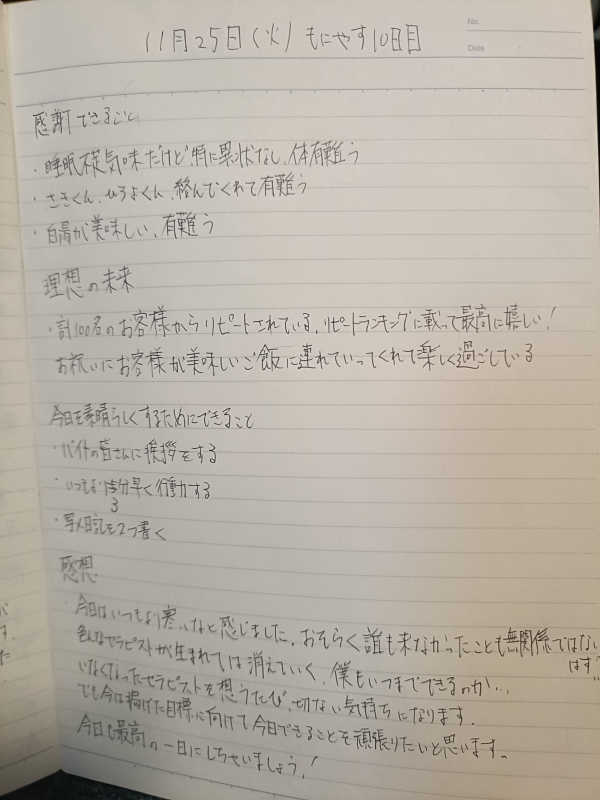 No.
Date
11月25日(火) もにやす10日目
感謝できること
・睡眠不足気味だけど特に異状なし、体有難う
・さきくん、ひろよくん、絡んでくれて有難う
・白湯が美味しい、有難う
理想の未来
・計100名のお客様からリピートされている、リピートランキングに載って最高に嬉しい!
お祝いにお客様が美味しいご飯に連れていってくれて楽しく過ごしている
今日を素晴らしくするためにできること
・バイトの皆さんに挨拶をする
・いつもより分早く行動する
3
・写メ日記を2つ書く
感想
今日はいつもより寒いなと感じました。おそらく誰も来なかったことも無関係ではない
はず…
色んなセラピストが生まれては消えていく、僕もいつまでできるのか…
いなくなったセラピストを想うたび、切ない気持ちになります。
でも今は掲げた目標に向けて今日できることを頑張りたいと思います。
今日も最高の一日にしちゃいましょう!